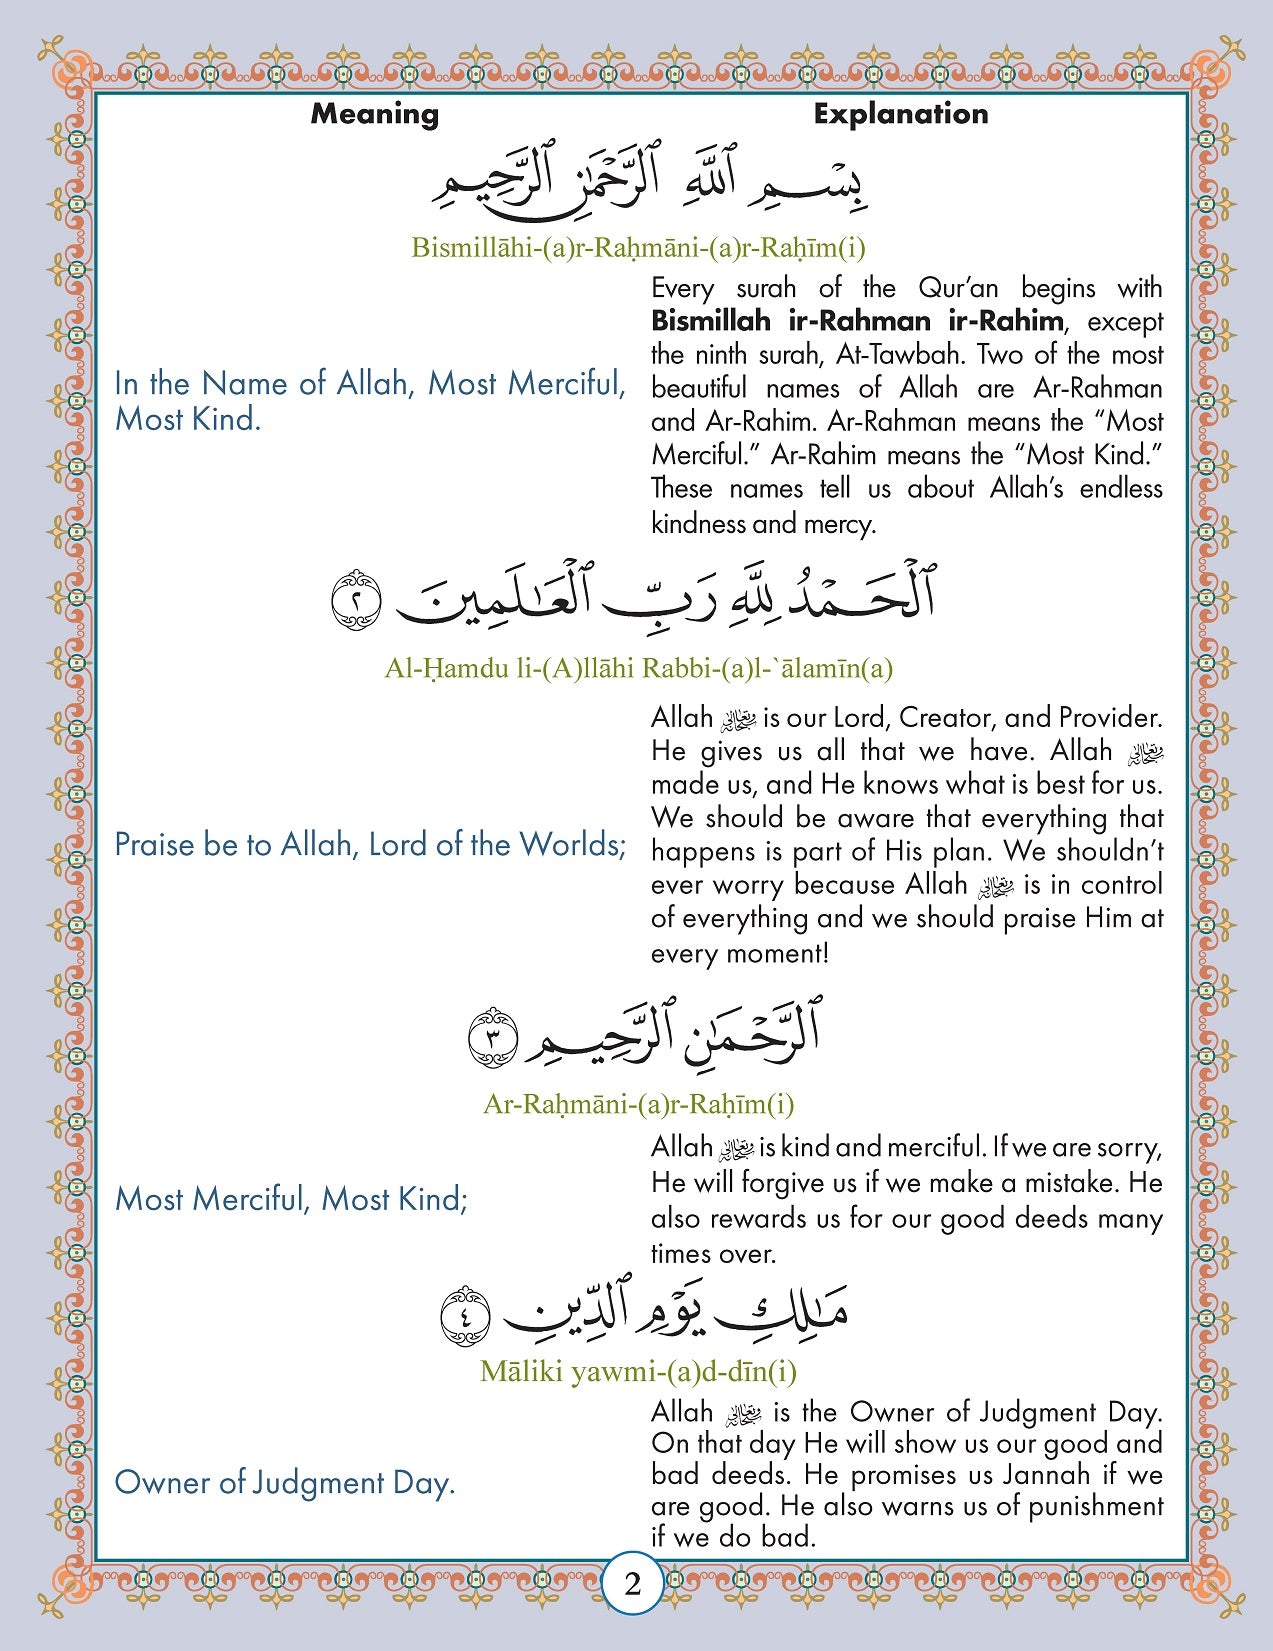 Meaning
Explanation
بِسْمِ ٱللَّهِ ٱلرَّحْمَٰنِ ٱلرَّحِيمِ
Bismillāhi-(a)r-Raḥmāni-(a)r-Raḥīm(i)
In the Name of Allah, Most Merciful,
Most Kind.
Every surah of the Qur’an begins with
Bismillah ir-Rahman ir-Rahim, except
the ninth surah, At-Tawbah. Two of the most
beautiful names of Allah are Ar-Rahman
and Ar-Rahim. Ar-Rahman means the “Most
Merciful.” Ar-Rahim means the “Most Kind.”
These names tell us about Allah’s endless
kindness and mercy.
ٱلْحَمْدُ لِلَّهِ رَبِّ ٱلْعَٰلَمِينَ ٢
Al-Ḥamdu li-(A)llāhi Rabbi-(a)l-`ālamīn(a)
Praise be to Allah, Lord of the Worlds;
Allah سبحانه وتعالى is our Lord, Creator, and Provider.
He gives us all that we have. Allah سبحانه وتعالى
made us, and He knows what is best for us.
We should be aware that everything that
happens is part of His plan. We shouldn’t
ever worry because Allah سبحانه وتعالى is in control
of everything and we should praise Him at
every moment!
ٱلرَّحْمَٰنِ ٱلرَّحِيمِ ٣
Ar-Raḥmāni-(a)r-Raḥīm(i)
Most Merciful, Most Kind;
Allah سبحانه وتعالى is kind and merciful. If we are sorry,
He will forgive us if we make a mistake. He
also rewards us for our good deeds many
times over.
مَٰلِكِ يَوْمِ ٱلدِّينِ ٤
Māliki yawmi-(a)d-dīn(i)
Owner of Judgment Day.
Allah سبحانه وتعالى is the Owner of Judgment Day.
On that day He will show us our good and
bad deeds. He promises us Jannah if we
are good. He also warns us of punishment
if we do bad.
2